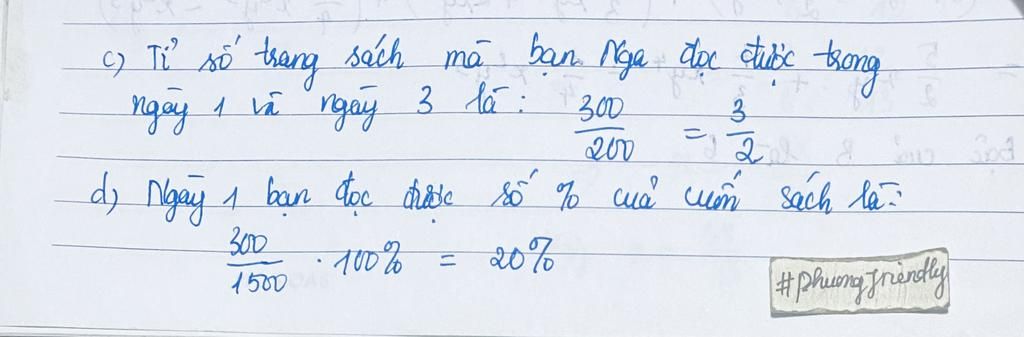 c) Tỉ số trang sách mà bạn Nga đọc được trong
ngày 1 và ngày 3 là: 300/200 = 3/2
d) Ngày 1 bạn đọc được số % của cuốn sách là:
300/1500 . 100% = 20%
#phuongfriendly